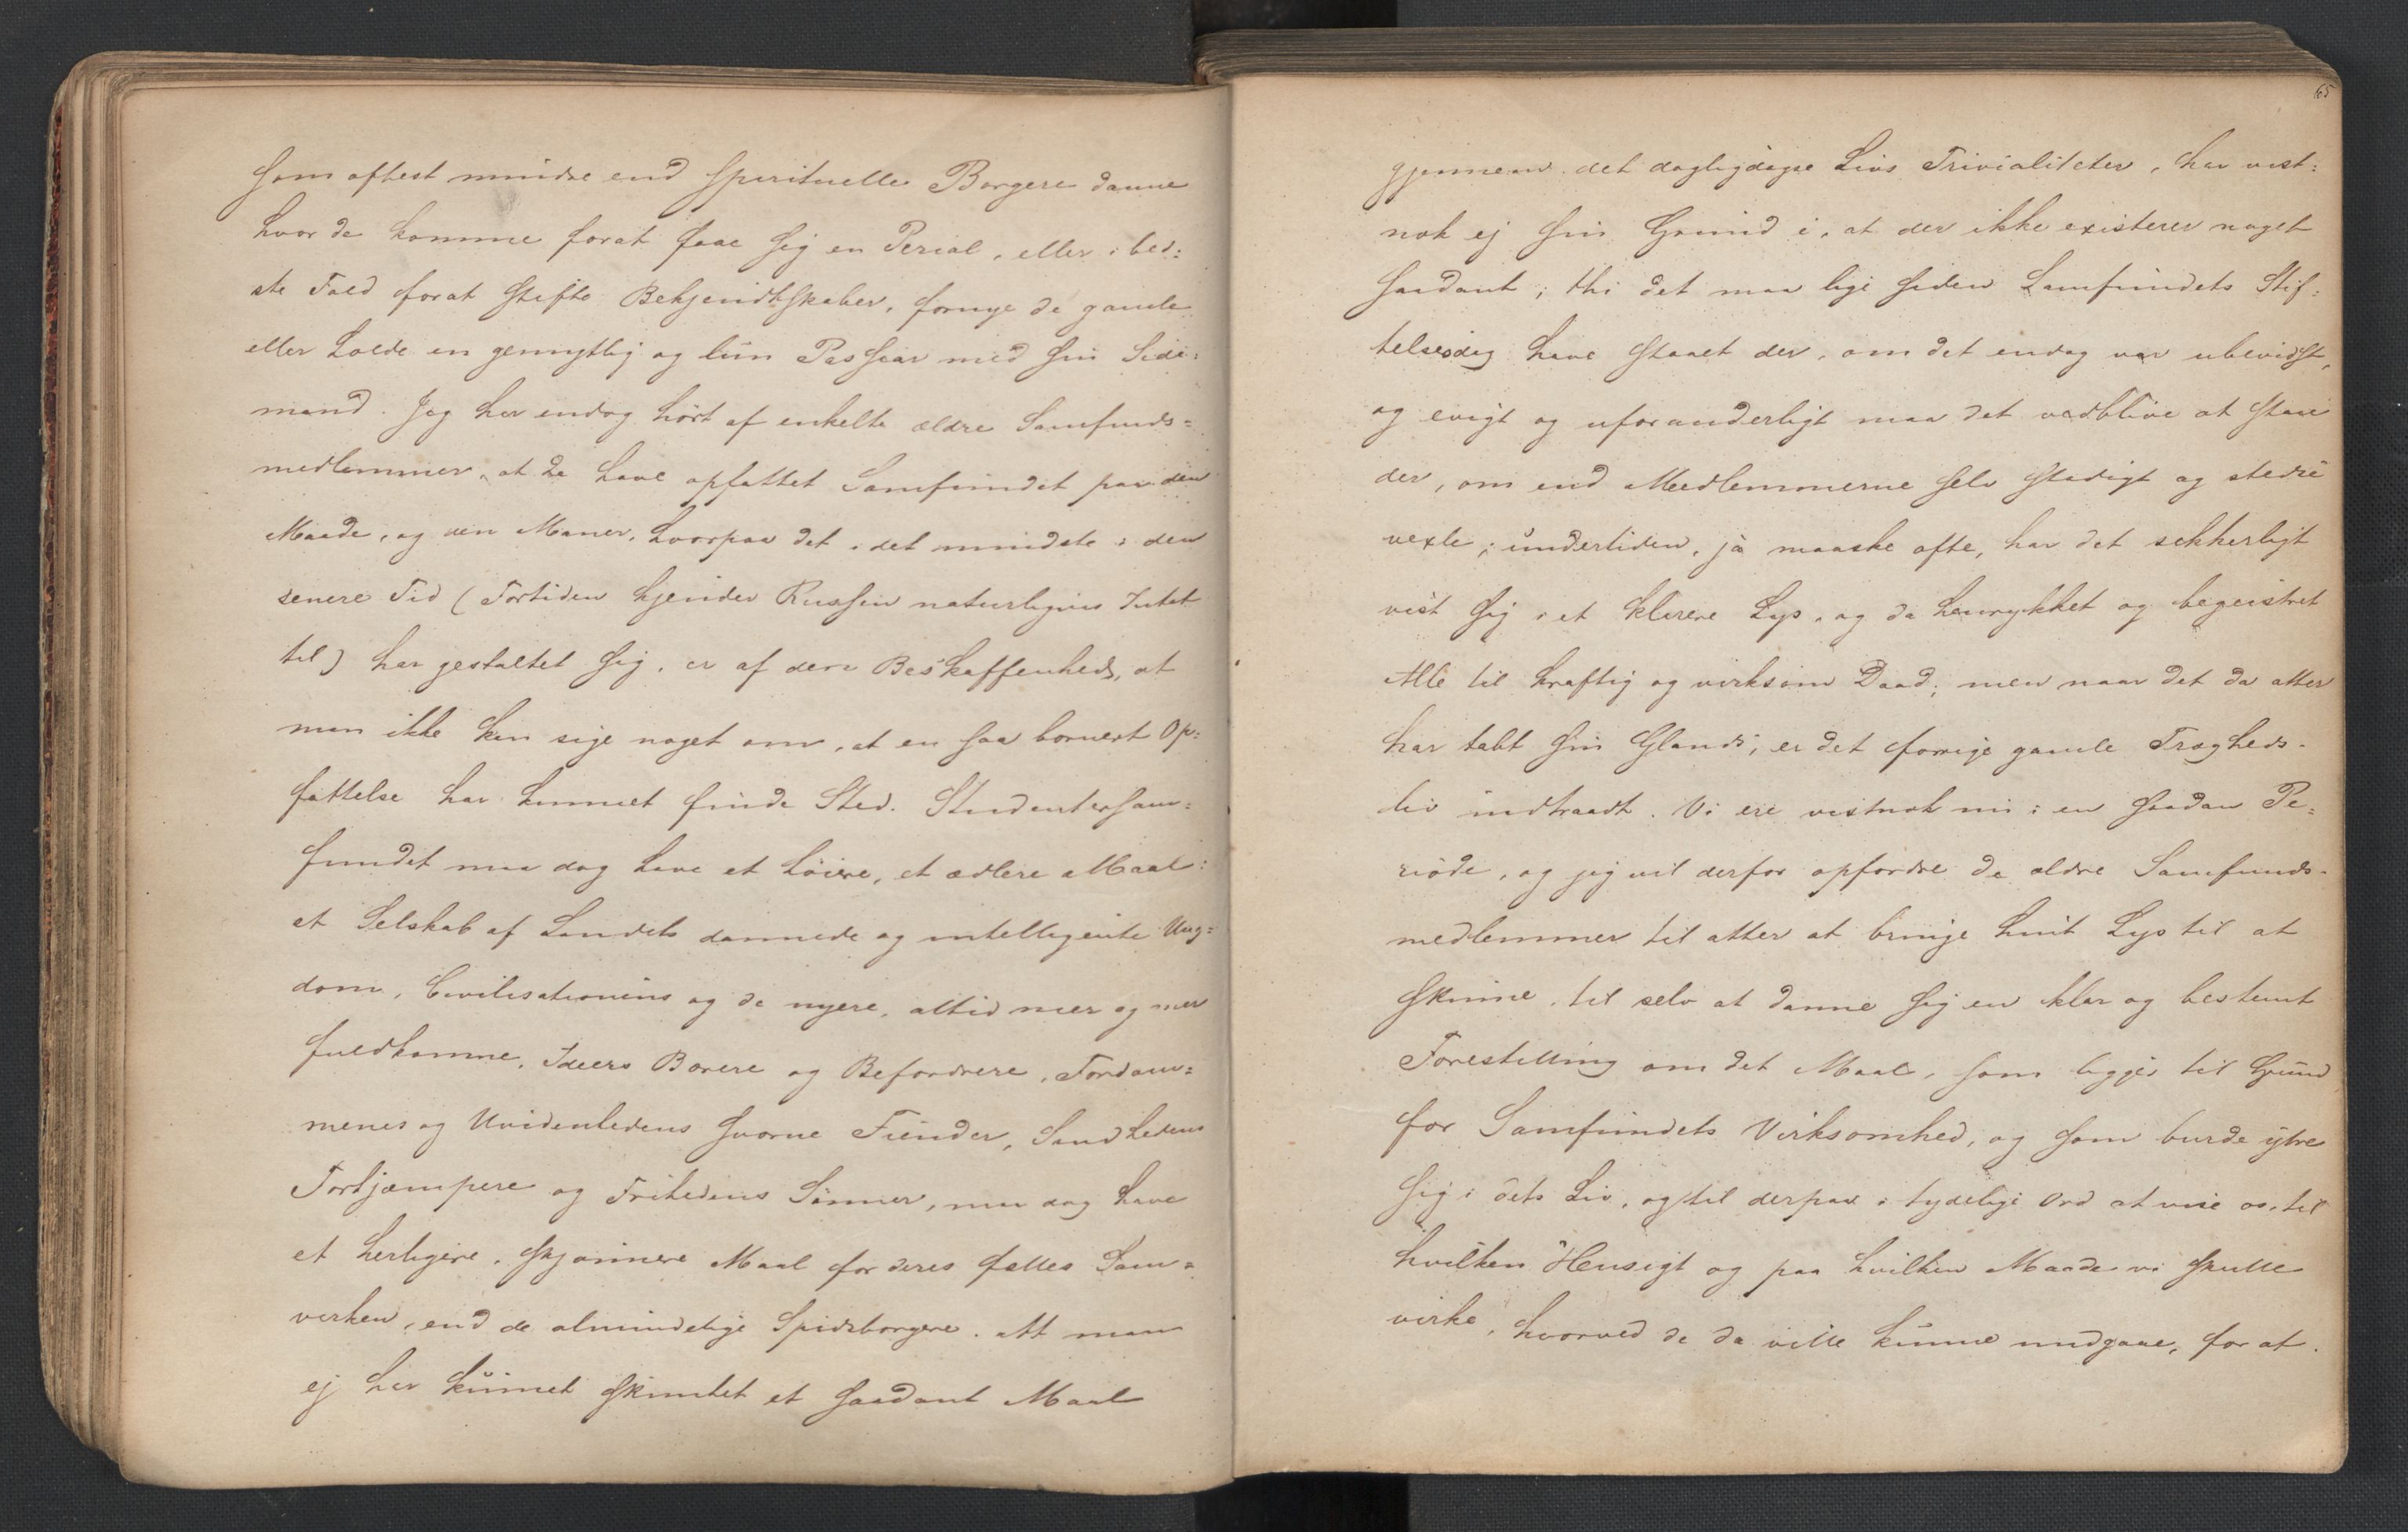 som oftest mindre end spirituelle Borgere danne
hvor de komme forat faae sig en Perial, eller i bed=
ste Fald forat stifte Bekjendtskaber, fornye de gamle
eller holde en gemytlig og luun Passiar med sin Side=
mand. Jeg har endog hört af enkelte ældre Samfunds=
medlemmer, at de have opfattet Samfundet paa den
Maade, og den Maner, hvorpaa det i det mindste i den
senere Tid (Fortiden kjender Russen naturligvis Intet
til) har gestaltet sig, er af den Beskaffenhed, at
man ikke kan sige noget om, at en saa borneert Op=
fattelse har kunnet finde Sted. Studentersam=
fundet maa dog have et höiere, et ædlere Maal:
et Selskab af Landets dannede og intelligente Ung=
dom, Civilisationens og de nyere, altid mer og mer
fuldkomne, Ideers Bærere og Befordrere, Fordom=
menes og Uvidenhedens svorne Fiender, Sandhedens
Forkjæmpere og Frihedens Sönner, maa dog have
et herligere, skjönnere Maal for deres fælles Sam=
virken, end de almindelige Spidsborgere. At man
ej har kunnet skimtet et saadant Maal
65
gjennem det dagligdagse Livs Trivialiteter, har vist=
nok ej sin Grund i, at der ikke existerer noget
saadant; thi det maa lige siden Samfundets Stif=
telsesdag have staaet der, om det endog var ubevidst,
og evigt og uforanderligt maa det vedblive at staae
der, om end Medlemmerne selv stadigt og stedse
vexle; undertiden, ja maaske ofte, har det sikkerligt
viist sig i et klarere Lys, og da henrykket og begeistret
Alle til kraftig og virksom Daad; men naar det da atter
har tabt sin Glands, er det forrige gamle Trægheds=
liv indtraadt. Vi ere vistnok nu i en saadan Pe=
riode, og jeg vil derfor opfordre de ældre Samfunds=
medlemmer til atter at bringe hint Lys til at
skinne, til selv at danne sig en klar og bestemt
Forestilling om det Maal, som ligger til Grund
for Samfundets Virksomhed, og som burde ytre
sig i dets Liv, og til derpaa i tydelige Ord at vise os, til
hvilken Hensigt og paa hvilken Maade vi skulle
virke, hvorved de da ville kunne undgaae, for at